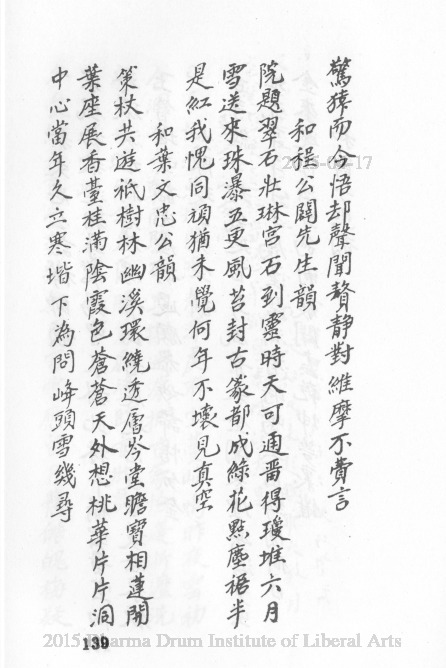 驚猿而今悟却聲聞贅靜對維摩不費言
和程公闢先生韻
院題翠石壯琳宮石到靈時天可通畱得瓊堆六月
雪送來珠瀑五更風苔封古篆都成綠花點塵裾半
是紅我愧同頑猶未覺何年不壞見真空
和葉文忠公韻
策杖共遊祇樹林幽溪環繞透層岑堂瞻寶相蓮開
葉座展香臺桂滿陰霞色蒼蒼天外想桃華片片洞
中心當年久立寒堦下為問峰頭雪幾尋
139
2015-04-17
2015 Dharma Drum Institute of Liberal Arts